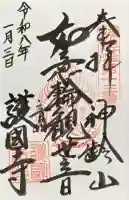 奉拝
神齢山
如意輪観世音
護國寺
令和八年
一月三日